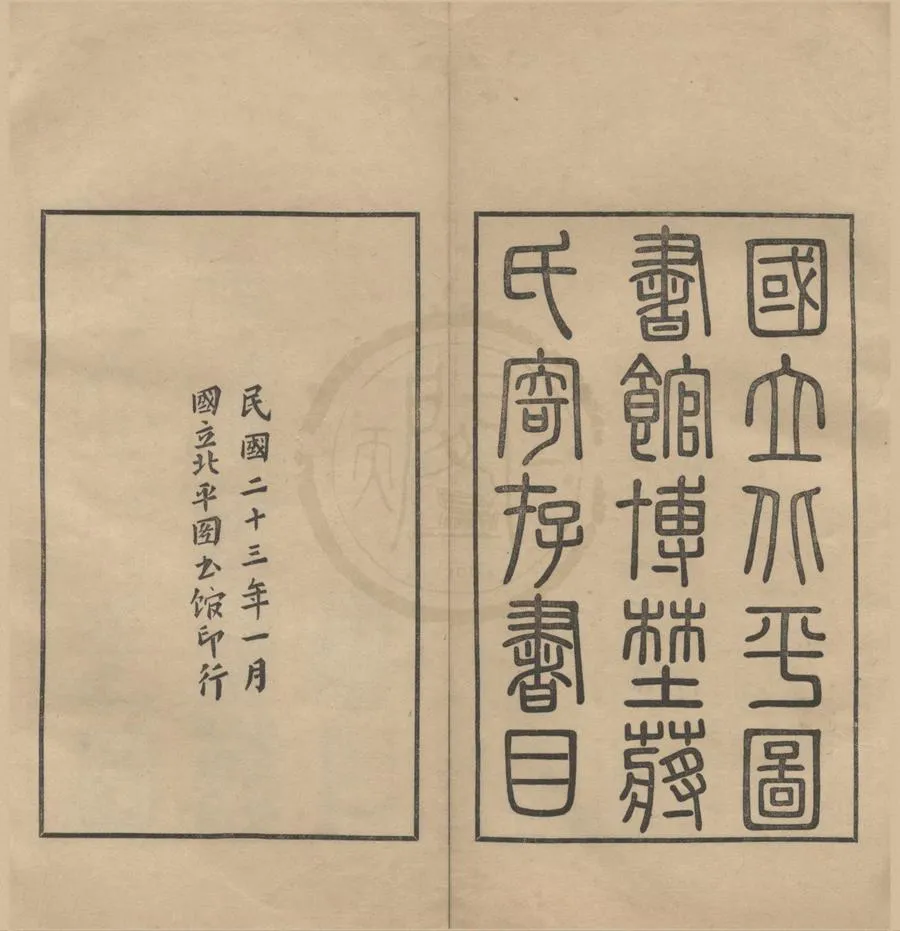 國立北平圖
書館博埜蔣
氏寄存書目
民國二十三年一月
國立北平圖书館印行